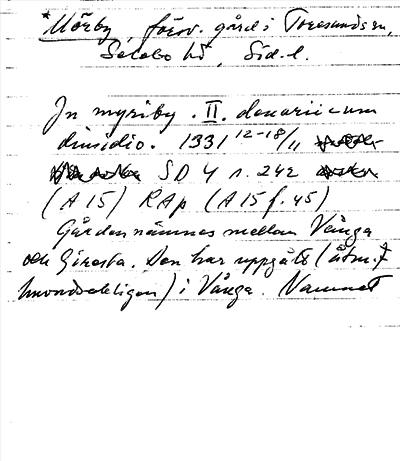 * Mörby, förv. gård i Toresunds sn,
Selebo hd, Södl.
Jn myriby . II. denarii cum
dimidio. 1331 12-18/11
SD 4 s. 242
(A 15) RAp (A 15 f. 45)
Gården nämnes mellan Vånga
och Giresta. Den har uppgått (åtm.
huvudsakligen) i Vånga. Namnet